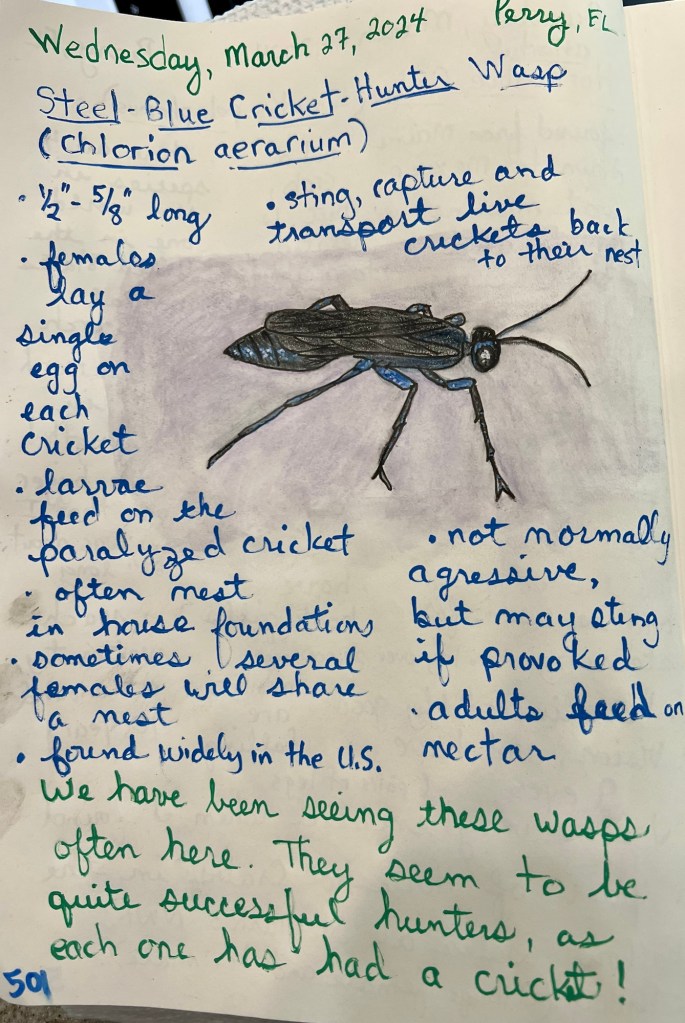 Wednesday, March 27, 2024 Perry, FL
Steel-Blue Cricket-Hunter Wasp
(Chlorion aerarium)
• 1/2"- 5/8" long
• sting, capture and
transport live
crickets back
to their nest
• females
lay a
single
egg on
each
cricket
• larvae
feed on the
paralyzed cricket
• often nest
in house foundations
• sometimes several
females will share
a nest
• found widely in the U.S.
• not normally
agressive,
but may sting
if provoked
• adults feed on
nectar
We have been seeing these wasps
often here. They seem to be
quite successful hunters, as
each one has had a cricket!
501